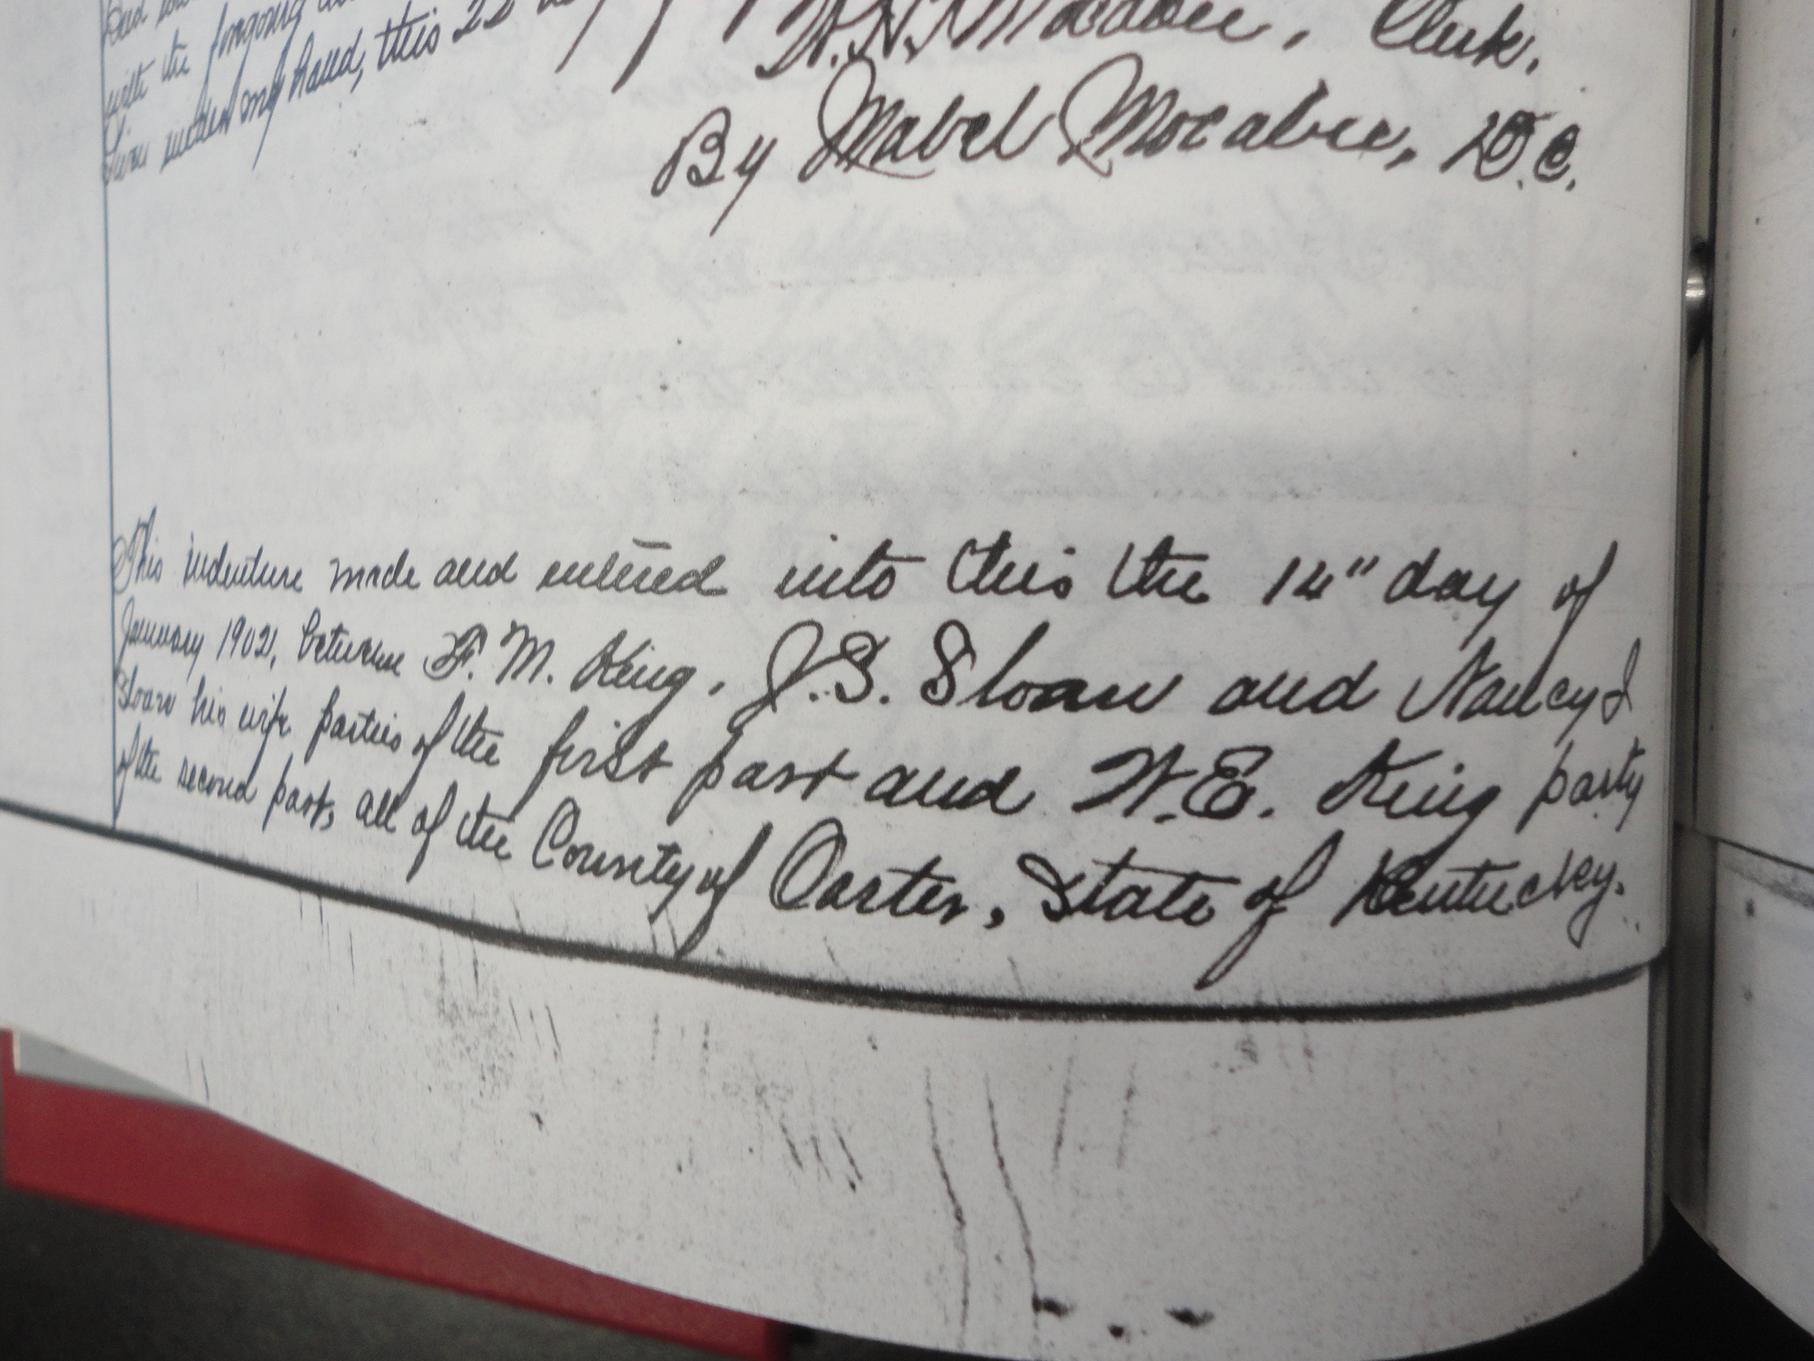 with the foregoing
Given under my hand, this 22
Clerk.
By Mabel Mocabee, D.C.
This indenture made and entered into this the 14" day of
January 1902, between F. M. King, J. S. Sloan and Nancy J
Sloan his wife parties of the first part and W. E. King party
of the second part, all of the County of Carter, State of Kentucky.